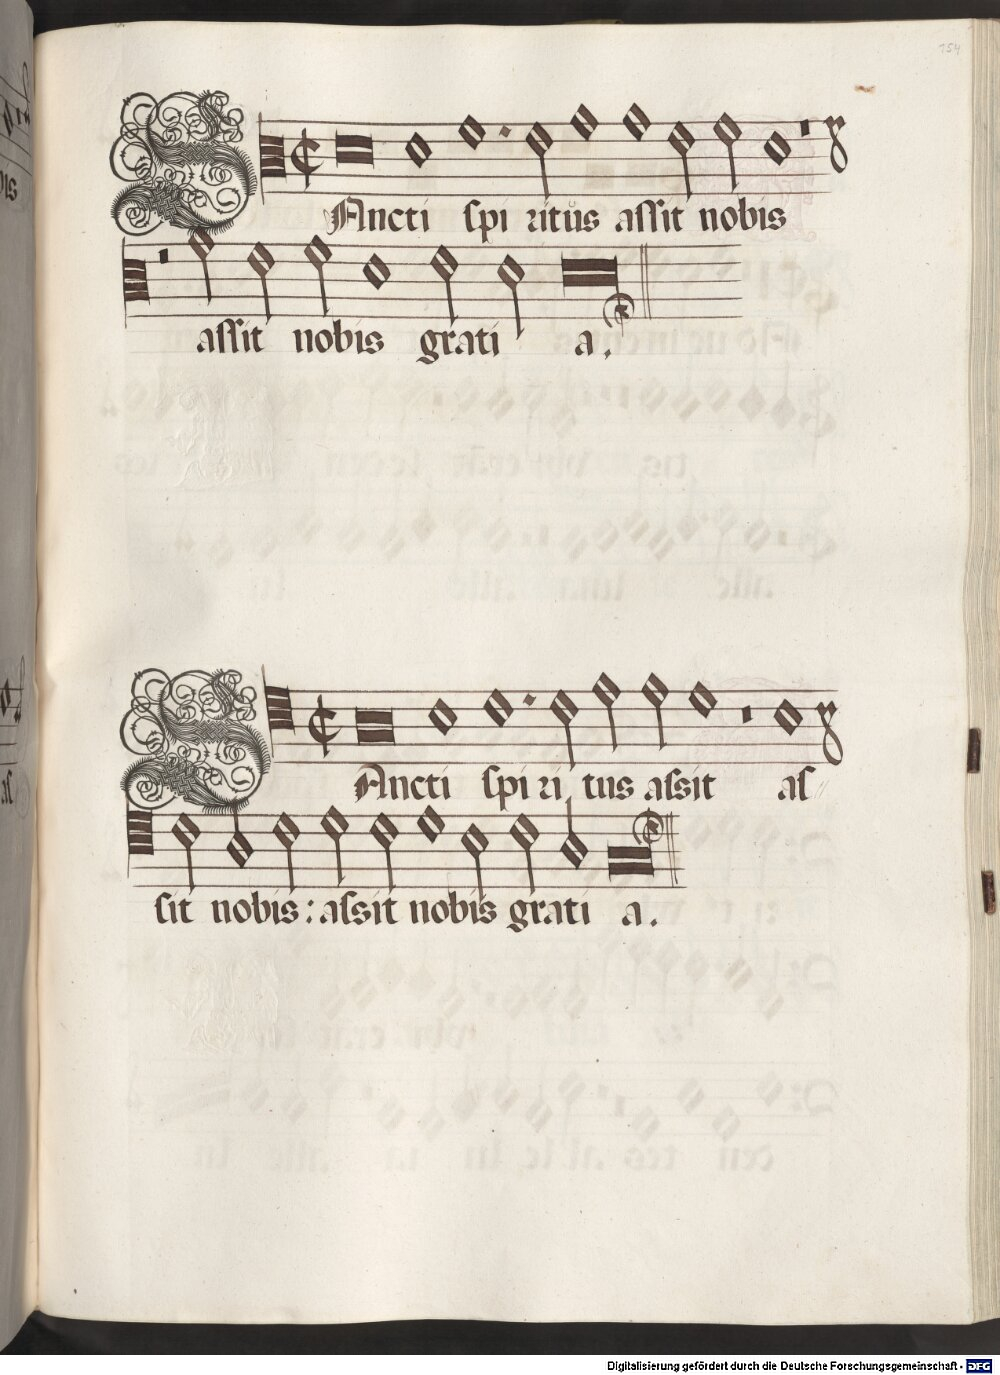 154
SAncti spiritus assit nobis
assit nobis grati a.
SAncti spiri tus assit as
sit nobis: assit nobis grati a.
Digitalisierung gefördert durch die Deutsche Forschungsgemeinschaft - DFG